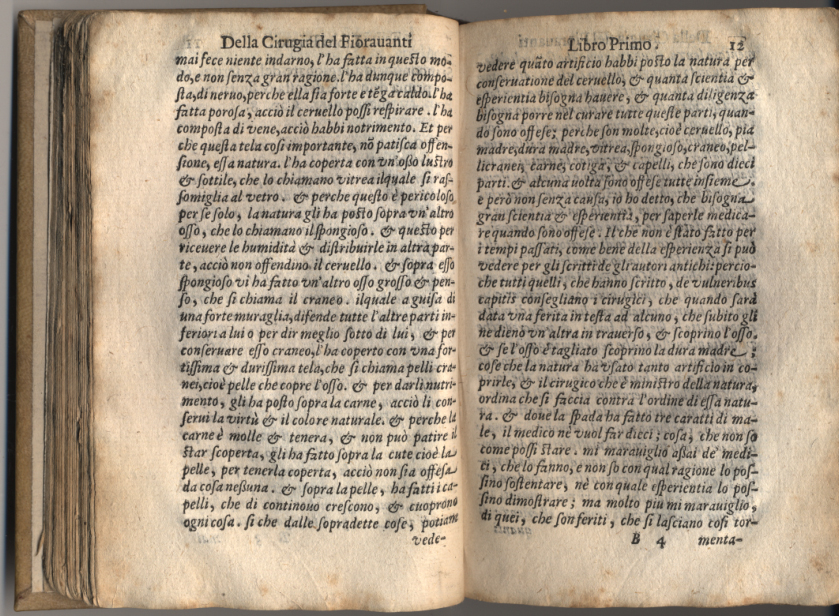 Della Cirugia del Fiorauanti
mai fece niente indarno, l'ha fatta in questo mo-
do, e non senza gran ragione. l'ha dunque compo-
sta, di neruo, perche ella sia forte e tẽga caldo. l'ha
fatta porosa, acciò il ceruello possi respirare. l'ha
composta di vene, acciò habbi notrimento. Et per
che questa tela cosi importante, nõ patisca offen-
sione, essa natura. l'ha coperta con vn'osso lustro
& sottile, che lo chiamano vitrea ilquale si ras-
somiglia al vetro. & perche questo è pericoloso
per se solo, la natura gli ha posto sopra vn'altro
osso, che lo chiamano il spongioso. & questo per
riceuere le humidità & distribuirle in altra par-
te, acciò non offendino il ceruello. & sopra esso
spongioso vi ha fatto vn'altro osso grosso & pen-
so, che si chiama il craneo. ilquale a guisa di
una forte muraglia, difende tutte l'altre parti in-
feriori a lui o per dir meglio sotto di lui, & per
conseruare esso craneo, l'ha coperto con vna for-
tissima & durissima tela, che si chiama pelli cra-
nei, cioè pelle che copre l'osso. & per darli nutri-
mento, gli ha posto sopra la carne, acciò li con-
serui la virtù & il colore naturale. & perche la
carne è molle & tenera, & non può patire il
star scoperta, gli ha fatto sopra la cute cioè la
pelle, per tenerla coperta, acciò non sia offesa
da cosa nessuna. & sopra la pelle, ha fatti i ca-
pelli, che di continouo crescono, & cuoprono
ogni cosa. si che dalle sopradette cose, potiamo
vede-
Libro Primo. 12
vedere quãto artificio habbi posto la natura per
conseruatione del ceruello, & quanta scientia &
esperientia bisogna hauere, & quanta diligenza
bisogna porre nel curare tutte queste parti, quan-
do sono offese; perche son molte, cioè ceruello, pia
madre, dura madre, vitrea, spongioso, craneo, pel-
licranei, carne, cotiga, & capelli, che sono dieci
parti. & alcuna uolta sono offese tutte insieme.
e però non senza causa, io ho detto, che bisogna
gran scientia & esperientia, per saperle medica-
re quando sono offese. Il che non è stato fatto per
i tempi passati, come bene della esperienza si può
vedere per gli scritti de gli autori antichi: percio-
che tutti quelli, che hanno scritto, de vulneribus
capitis consegliano i cirugici, che quando sarà
data vna ferita in testa ad alcuno, che subito gli
ne dieno vn'altra in trauerso, & scoprino l'osso.
& se l'osso è tagliato scoprino la dura madre;
cose che la natura ha vsato tanto artificio in co-
prirle, & il cirugico che è ministro della natura,
ordina che si faccia contra l'ordine di essa natu-
ra. & doue la spada ha fatto tre caratti di ma-
le, il medico ne vuol far dieci; cosa, che non so
come possi stare. mi marauiglio assai de' medi-
ci, che lo fanno, e non so con qual ragione lo pos-
sino sostentare, nè con quale esperientia lo pos-
sino dimostrare; ma molto piu mi marauiglio,
di quei, che son feriti, che si lasciano cosi tor-
B 4 menta-